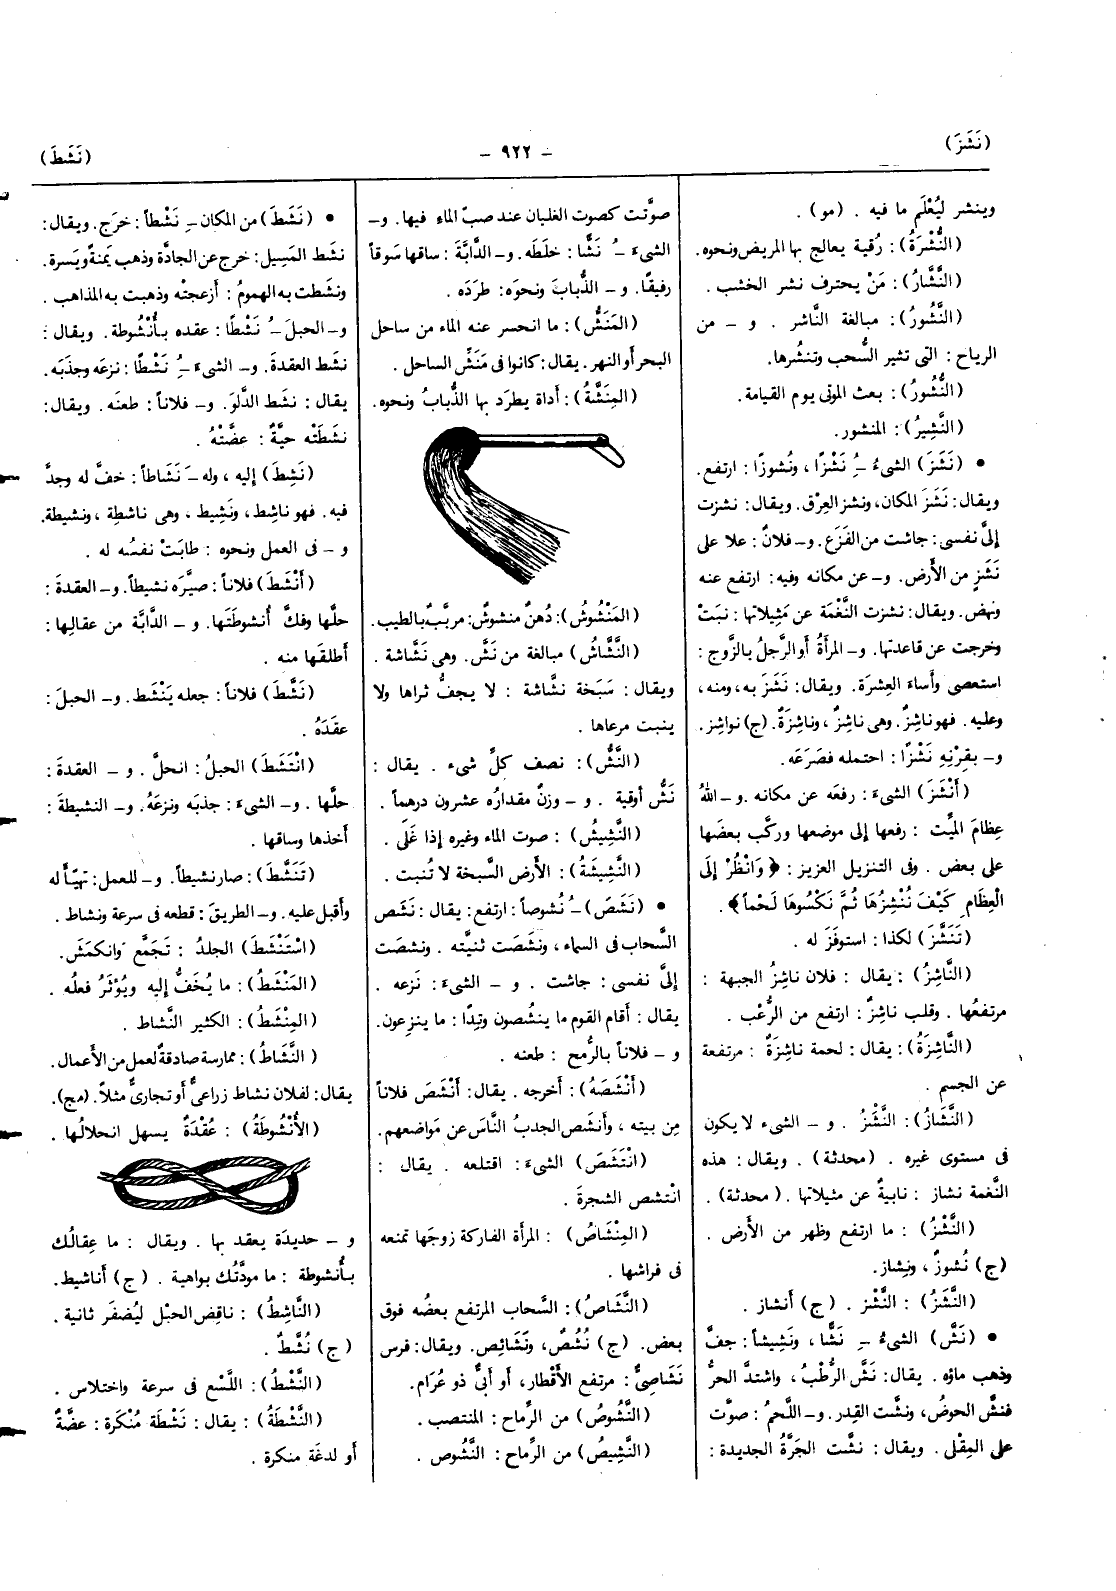 (نَشَزَ)
– ٩٢٢ –
(نَشَطَ)
وينشر ليُعْلَم ما فيه . (مو) .
(النُّشْرَةُ) : رُقية يعالج بها المريض ونحوه.
(النَّشَّارُ) : مَنْ يحترف نشر الخشب .
(النَّشُورُ) : مبالغة النَّاشر . و – من
الرياح : التى تثير السُّحب وتنشُرها.
(النُّشُورُ) : بعث الموتى يوم القيامة.
(النَّشِيرُ) : المنشور.
• (نَشَزَ) الشىءُ –ُِ نَشْزًا ، ونُشوزًا : ارتفع.
ويقال : نَشَزَ المكان، ونشز العِرْق. ويقال: نشزت
إلىَّ نفسى : جاشت من الفَزَع. و– فلانٌ : علا على
نَشَزٍ من الأَرض. و– عن مكانه وفيه: ارتفع عنه
ونهض. ويقال: نشزت النَّغْمة عن مَثِيلاتها : نبَتْ
وخرجت عن قاعدتها. و– المرأَةُ أَو الرَّجلُ بالزَّوج :
استعصى وأَساءَ العِشرَة. ويقال: نَشَزَ به، ومنه،
وعليه. فهو ناشِزٌ. وهى ناشِزٌ ، وناشِزَةٌ. (ج) نواشِز.
و– بقِرْنِهِ نَشْزًا : احتمله فصَرَعَه.
(أَنْشَزَ) الشىءَ : رفعَه عن مكانه. و– اللهُ
عِظامَ الميِّت : رفعها إلى موضعها وركَّب بعضَها
على بعض . وفى التنزيل العزيز : ﴿ وَانْظُرْ إِلَى
الْعِظَامِ كَيْفَ نُنْشِزُهَا ثُمَّ نَكْسُوهَا لَحْماً﴾ .
(تَنَشَّزَ) لكذا : استوفَزَ له .
(النَّاشِزُ) : يقال : فلان ناشِزُ الجبهة :
مرتفعُها . وقلب ناشِزٌ : ارتفع من الرُّعْب .
(النَّاشِزَةُ) : يقال : لحمة ناشِزَةٌ : مرتفعة
عن الجسم .
(النَّشَازُ) : النَّشْزُ . و – الشىء لا يكون
فى مستوى غيره . (محدثة) . ويقال : هذه
النَّغمة نشاز : نابيةٌ عن مثيلاتها . (محدثة) .
(النَّشْزُ) : ما ارتفع وظهر من الأَرض .
(ج) نُشوزٌ ، ونِشاز.
(النَّشَزُ) : النَّشْز . (ج) أَنشاز .
• (نَشَّ) الشىءُ –ِ نَشًّا ، ونَشِيشاً : جفَّ
وذهب ماؤه . يقال: نَشَّ الرُّطْبُ ، واشتدَّ الحرُّ
فنشَّ الحوضُ، ونشَّت القِدر. و– اللَّحمُ : صوَّت
على المِقْلى . ويقال : نشَّت الجَرَّةُ الجديدة :
صوَّتت كصوت الغليان عند صبّ الماءِ فيها. و–
الشىءَ –ُ نَشًّا : خلَطَه. و– الدَّابَّةَ : ساقها سَوقاً
رفيقًا. و – الذُّبابَ ونحوَه: طرَدَه .
(المَنَشُّ) : ما انحسر عنه الماء من ساحل
البحر أَو النهر . يقال: كانوا فى مَنَشِّ الساحل .
(المِنَشَّةُ) : أَداة يطرَد بها الذُّبابُ ونحوه.
(المَنْشُوشُ) : دُهنٌ منشوشٌ: مربَّبٌ بالطيب.
(النَّشَّاشُ) مبالغة من نَشَّ. وهى نَشَّاشة .
ويقال : سَبَخة نشَّاشة : لا يجفُّ ثراها ولا
ينبت مرعاها .
(النَّشُّ) : نصف كلِّ شىء . يقال :
نَشُّ أوقية . و– وزنٌ مقدارُه عشرون درهماً .
(النَّشِيشُ) : صوت الماء وغيره إذا غَلَى .
(النَّشِيشَةُ) : الأَرض السَّبخة لا تُنبت .
• (نَشَصَ) –ُ نُشوصاً : ارتفع : يقال : نَشَص
السَّحاب فى السماء ، ونشَصَت ثنيَّته . ونشصَت
إلىَّ نفسى : جاشت . و – الشىءَ : نزعه .
يقال : أَقام القوم ما ينشُصون وتِدًا : ما ينزِعون.
و – فلاناً بالرُّمح : طعنه .
(أَنْشَصَهُ) : أخرجه . يقال: أَنْشَصَ فلاناً
مِن بيته ، وأَنشَص الجدبُ النَّاسَ عن مَواضعهم.
(انْتَشَصَ) الشىءَ : اقتلعه . يقال :
انْتشص الشجرةَ .
(المِنْشَاصُ) : المرأَة الفاركة زوجَها تمنعه
فى فراشها .
(النَّشَاصُ) : السَّحاب المرتفع بعضُه فوق
بعض. (ج) نُشُصٌ، ونَشَائِص. ويقال: فرس
نَشَاصِىٌّ : مرتفع الأَقْطار، أَو أَبىٌّ ذو عُرَام.
(النَّشُوصُ) من الرِّماح : المنتصب .
(النَّشِيصُ) من الرِّماح : النَّشُوص .
• (نَشَطَ) من المكان –ِ نَشْطاً : خرَج. ويقال:
نشَط المَسِيل: خرج عن الجادَّة وذهب يَمنةً ويَسرة.
ونشَطت به الهمومُ : أَزعجتْه وذهبت به المذاهب .
و– الحبلَ –ُ نَشْطًا : عقده بأُنْشُوطة. ويقال :
نشَط العقدةَ. و– الشىءَ –ُِ نَشْطًا : نزعَه وجذَبَه.
يقال : نشَط الدَّلوَ. و– فلاناً : طعنَه. ويقال:
نشَطَتْه حيَّةٌ : عضَّتْهُ .
(نَشِطَ) إليه ، وله –َ نَشَاطاً : خفَّ له وجدَّ
فيه. فهو ناشِط، ونَشِيط ، وهى ناشطِة ، ونشيطة.
و – فى العمل ونحوه : طابَتْ نفسُه له .
(أَنْشَطَ) فلاناً : صيَّرَه نشيطاً. و– العقدةَ :
حلَّها وفكَّ أُنشوطَتَها. و – الدَّابَّة من عقالِها :
أَطلقَها منه .
(نَشَّطَ) فلاناً : جعله يَنْشَط. و– الحبلَ :
عقَدَهُ .
(انْتَشَطَ) الحبلُ : انحلَّ . و – العقدةَ :
حلَّها . و– الشىءَ : جذبَه ونزعَهُ. و– النشيطةَ :
أَخذها وساقها .
(تَنَشَّطَ) : صار نشيطاً. و– للعمل: تهيَّأَ له
وأَقبل عليه. و– الطريقَ : قطعه فى سرعة ونشاط.
(اسْتَنْشَطَ) الجلدُ : تَجَمَّع وَانكمَشَ.
(المَنْشَطُ) : ما يُخَفُّ إليه ويُؤثَرُ فعلُه .
(المِنْشَطُ) : الكثير النَّشاط .
(النَّشَاطُ) : ممارسة صادقةٌ لعمل من الأَعمال.
يقال: لفلان نشاط زراعىٌّ أَو تجارىٌّ مثلاً. (مج).
(الأُنْشُوطَةُ) : عُقْدَةٌ يسهل انحلالُها .
و – حديدَة يعقد بها . ويقال : ما عِقالُك
بأُنشوطة : ما مودَّتُك بواهية . (ج) أَناشيط.
(النَّاشِطُ) : ناقِض الحبْل ليُضفَر ثانية .
(ج) نُشَّطٌ .
(النَّشْطُ) : اللَّسْع فى سرعة واختلاس .
(النَّشْطَةُ) : يقال : نَشْطَة مُنْكَرة : عضَّةٌ
أَو لدغَة منكرة .